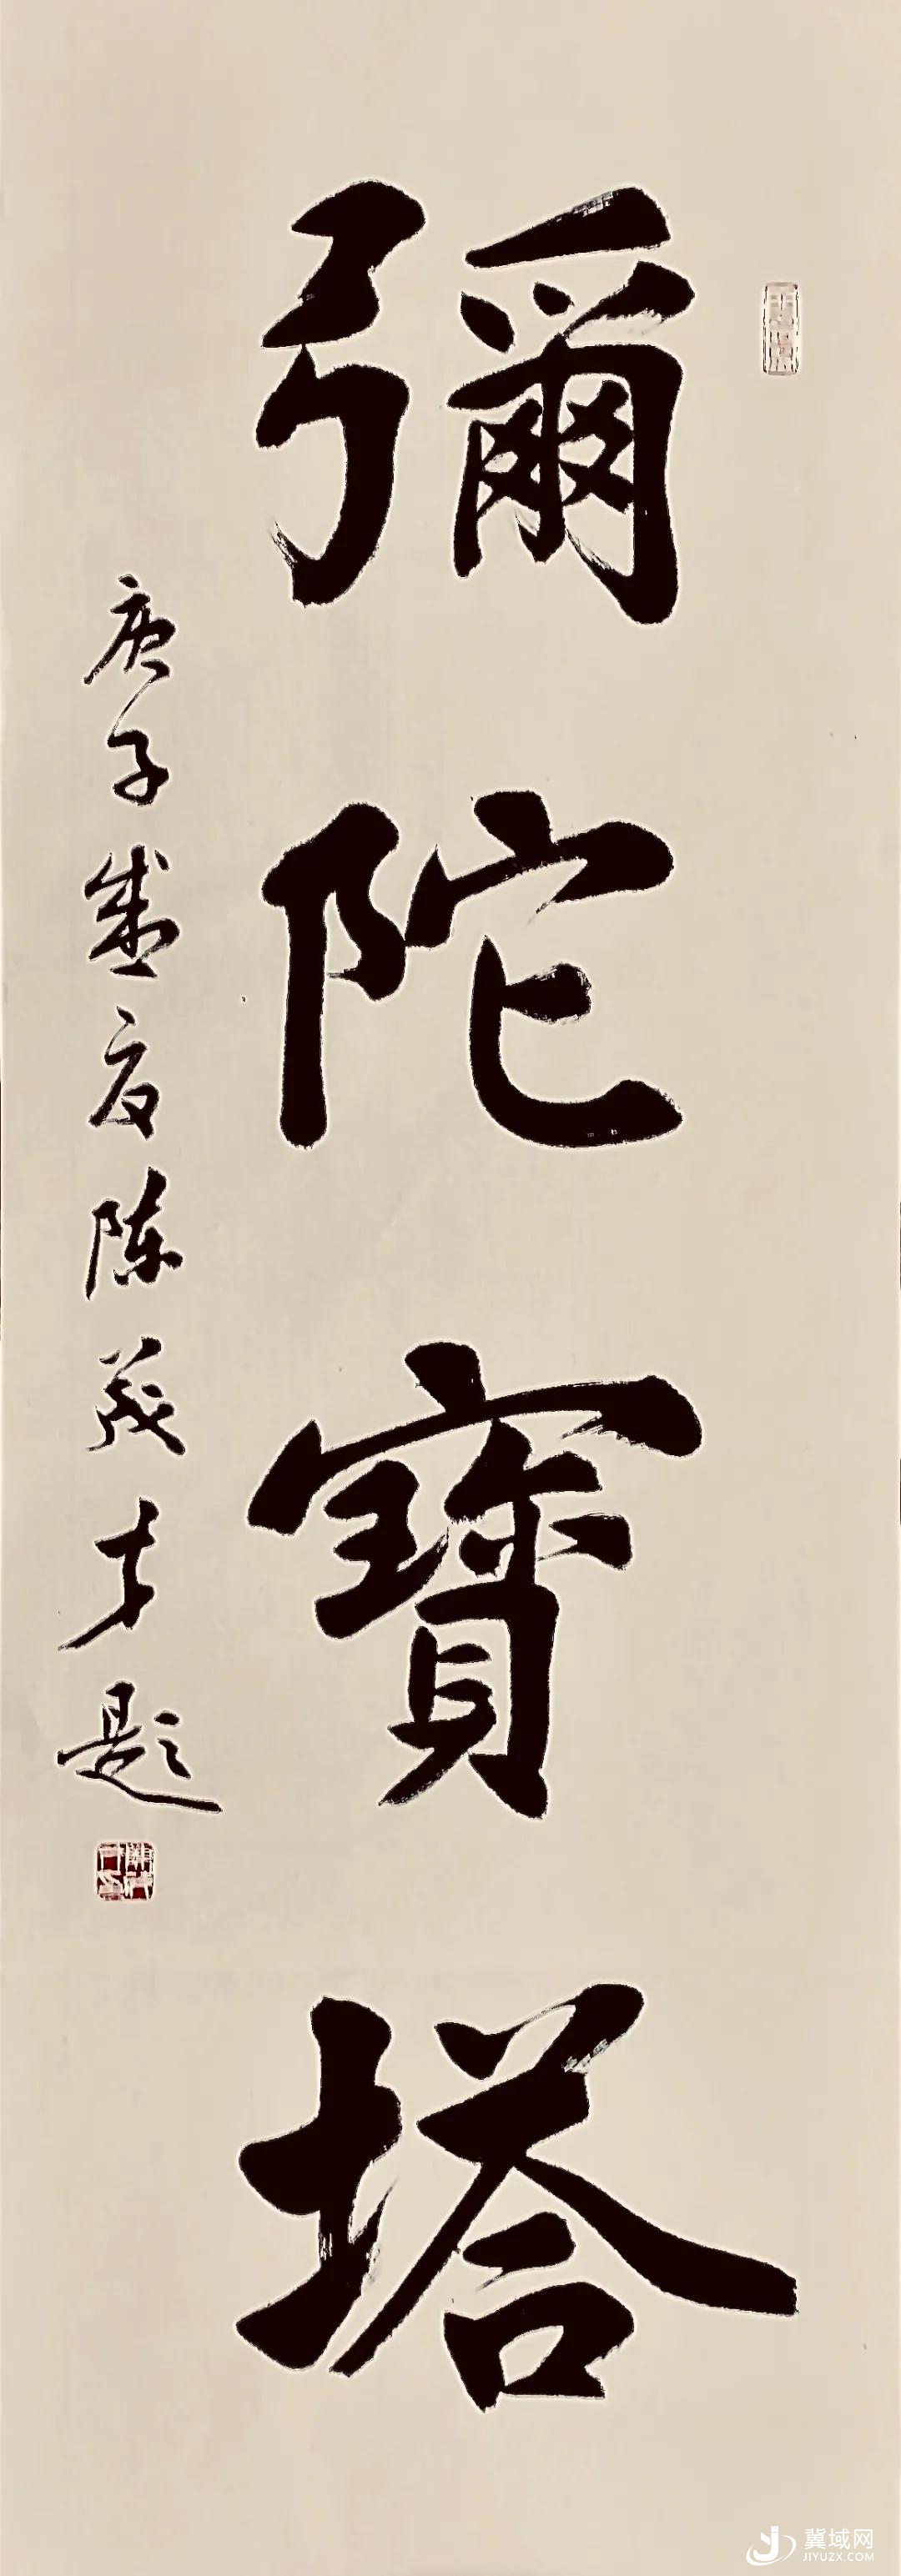 彌陀寶塔
庚子盛夏陈茂才题
冀域网
JIYUZX.COM